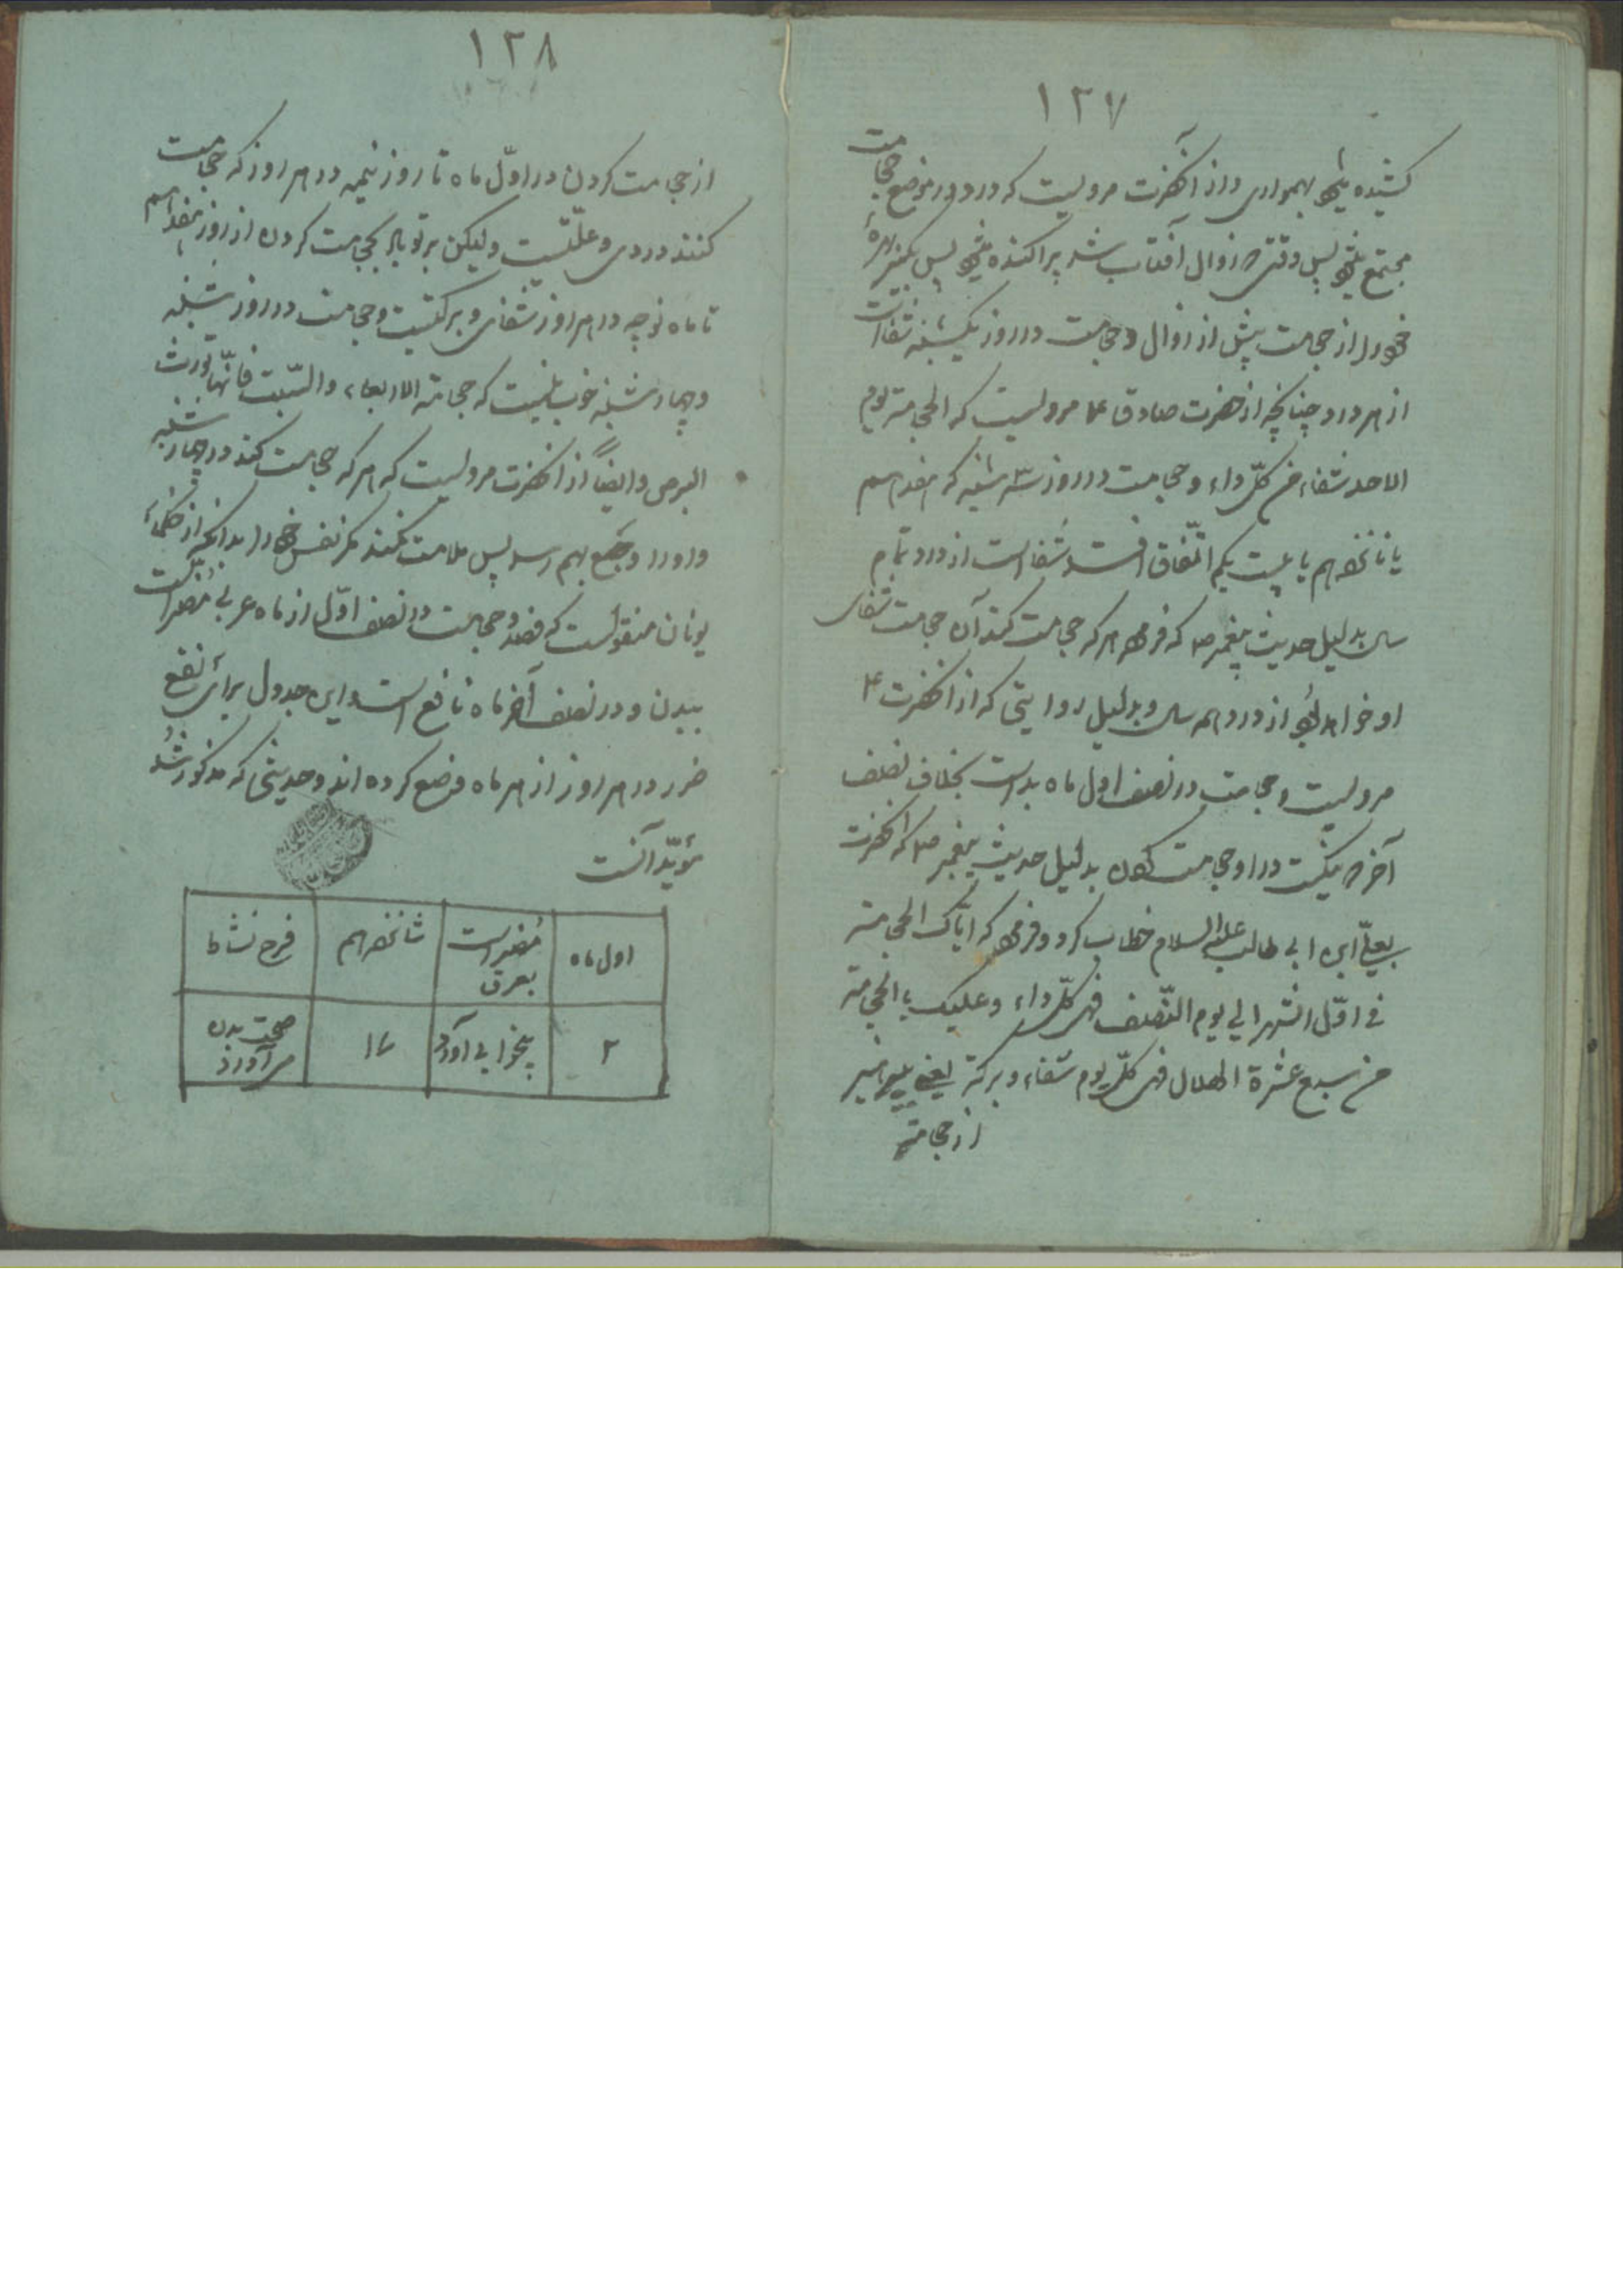 ۱۲۷
کشیده میشود بهمواری و از آنحضرت مرویست که درد در موضع حجامت
مجتمع میشود پس وقتیکه زوال آفتاب شد پراکنده میشود پس بگیر بهرهٔ
خود را از حجامت پیش از زوال و حجامت در روز یکشنبه شفاست
از هر درد چنانچه از حضرت صادق ع مرویست که الحجامة یوم
الاحد شفاء من کلّ داء و حجامت در روز سه شنبه که هفدهم
یا نانزدهم یا بیست یکم اتّفاق افتد شفا است از درد تمام
سال بدلیل حدیث پیغمبر ص که فرمود هر که حجامت کند آن حجامت شفای
او خواهد بود از درد همه سال و بدلیل روایتی که از آنحضرت ۴
مرویست و حجامت در نصف اول ماه بد است بخلاف نصف
آخر که نیکست در او حجامت کردن بدلیل حدیث پیغمبر ص که آنحضرت
بعلیّ ابن ابی طالب علیه السلام خطاب کرد و فرمود که ایّاک الحجامة
فی اوّل الشهر الی یوم النّصف فی کلّ داء و علیک بالحجامة
من سبع عشرة الهلال فی کلّ یوم شفاء و برکة یعنی بپرهیز
از حجامة
۱۲۸
از حجامت کردن در اوّل ماه تا روز نیمه در هر روز که حجامت
کنند دردی و علّتیست و لیکن بر تو باد بحجامت کردن از روز هفدهم
تا ماه نوچه در هر روز شفائی و برکتیست و حجامت در روز شنبه
و چهار شنبه خوب نیست که حجامة الاربعاء والسّبت فانّها تورث
البرص و ایضاً از آنحضرت مرویست که هر که حجامت کند در چهار شنبه
و او را وجع بهم رسد پس ملامت نکند مگر نفس خود را بدانکه از حکماء
یونان منقولست که فصد و حجامت در نصف اوّل از ماه عربی مُضر است
ببدن و در نصف آخر ماه نافع است و این جدول برای نفع
ضرر در هر روز از هر ماه وضع کرده اند و حدیثی که مذکور شد
مؤیّد آنست
اول ماه | مُضر است بعرق | شانزدهم | فرح نشاط
۲ | بیخوابی آورد | ۱۷ | صحّت بدن می آورد